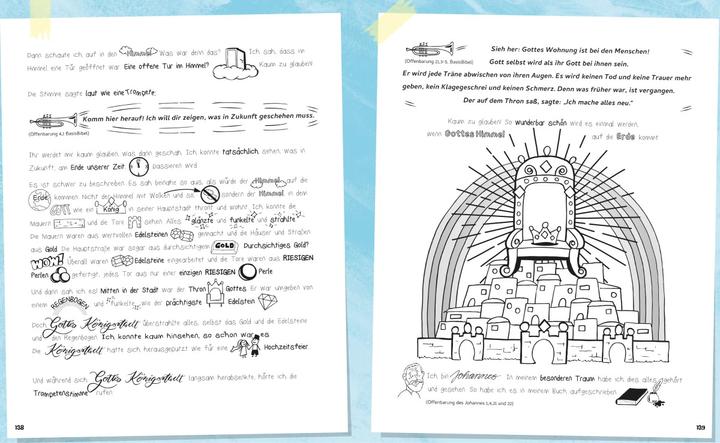 Dann schaute ich auf in den Himmel. Was war denn das? Ich sah, dass im
Himmel eine Tür geöffnet war. Eine offene Tür im Himmel? Kaum zu glauben!
Die Stimme sagte laut wie eine Trompete:
Komm hier herauf! Ich will dir zeigen, was in Zukunft geschehen muss.
(Offenbarung 4,1 BasisBibel)
Ihr werdet mir kaum glauben, was dann geschah. Ich konnte tatsächlich sehen, was in
Zukunft, am Ende unserer Zeit, passieren wird.
Es ist schwer zu beschreiben. Es sah beinahe so aus, als würde der Himmel auf die
Erde kommen. Nicht der Himmel mit Wolken und so, sondern der Himmel, in dem
GOTT wie ein König in seiner Hauptstadt thront und wohnt. Ich konnte die
Mauern und die Tore sehen. Alles glänzte und funkelte und strahlte.
Die Mauern waren aus wertvollen Edelsteinen gemacht und die Häuser und Straßen
aus Gold. Die Hauptstraße war sogar aus durchsichtigem GOLD. Durchsichtiges Gold?
WOW! Überall waren Edelsteine eingearbeitet und die Tore waren aus RIESIGEN
Perlen gefertigt, jedes Tor aus nur einer einzigen RIESIGEN Perle.
Und dann sah ich es! Mitten in der Stadt war der Thron Gottes. Er war umgeben von
einem REGENBOGEN und funkelte wie der prächtigste Edelstein.
Doch Gottes Königswelt überstrahlte alles, selbst das Gold und die Edelsteine
und den Regenbogen. Ich konnte kaum hinsehen, so schön war es.
Die Königswelt hatte sich herausgeputzt wie für eine Hochzeitsfeier.
Und während sich Gottes Königswelt langsam herabsenkte, hörte ich die
Trompetenstimme rufen:
138
Sieh her: Gottes Wohnung ist bei den Menschen!
(Offenbarung 21,3-5, BasisBibel)
Gott selbst wird als ihr Gott bei ihnen sein.
Er wird jede Träne abwischen von ihren Augen. Es wird keinen Tod und keine Trauer mehr
geben, kein Klagegeschrei und keinen Schmerz. Denn was früher war, ist vergangen.
Der auf dem Thron saß, sagte: „Ich mache alles neu."
Kaum zu glauben! So wunderbar schön wird es einmal werden,
wenn Gottes Himmel auf die Erde kommt.
Ich bin Johannes. In meinem besonderen Traum habe ich das alles gehört
und gesehen. So habe ich es in meinem Buch aufgeschrieben.
(Offenbarung des Johannes 1,4,21 und 22)
139